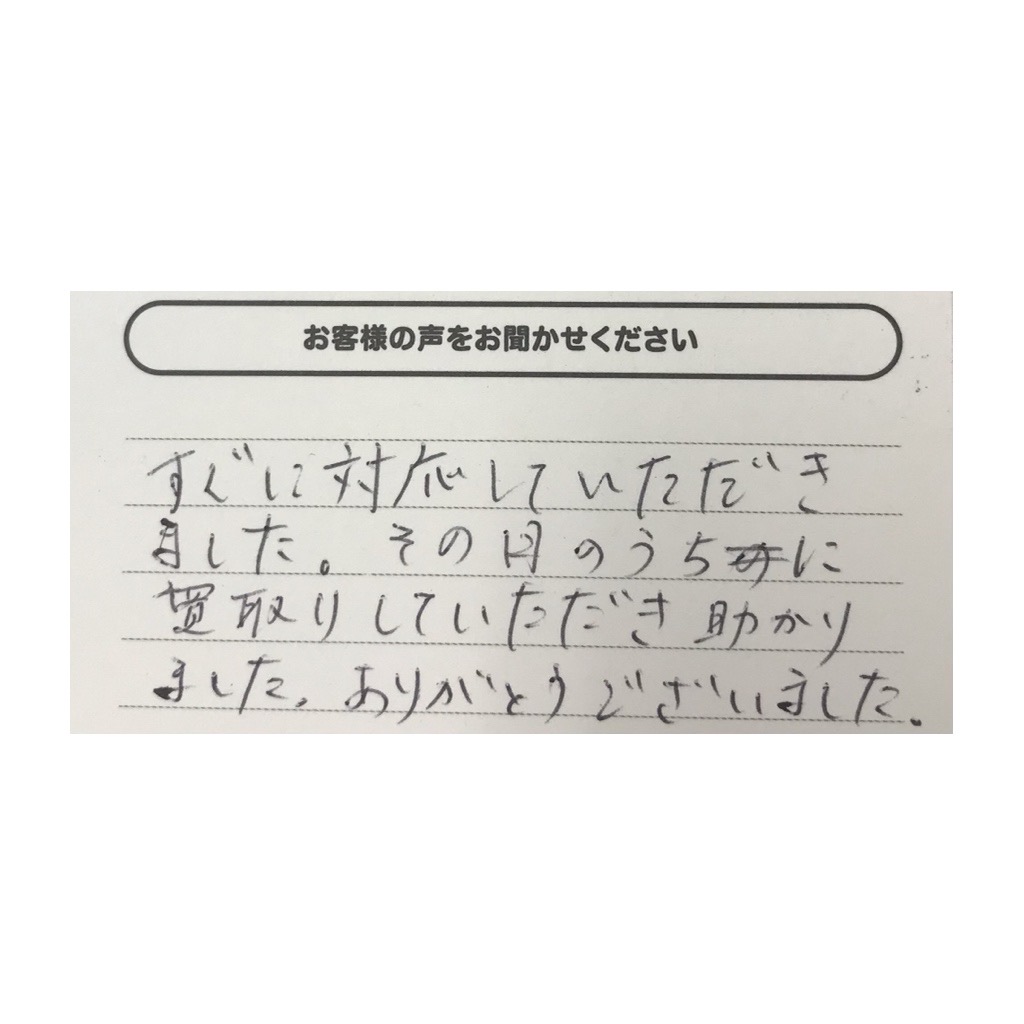 お客様の声をお聞かせください
すぐに対応していただき
ました。その日のうちに
買取りしていただき助かり
ました。ありがとうございました。